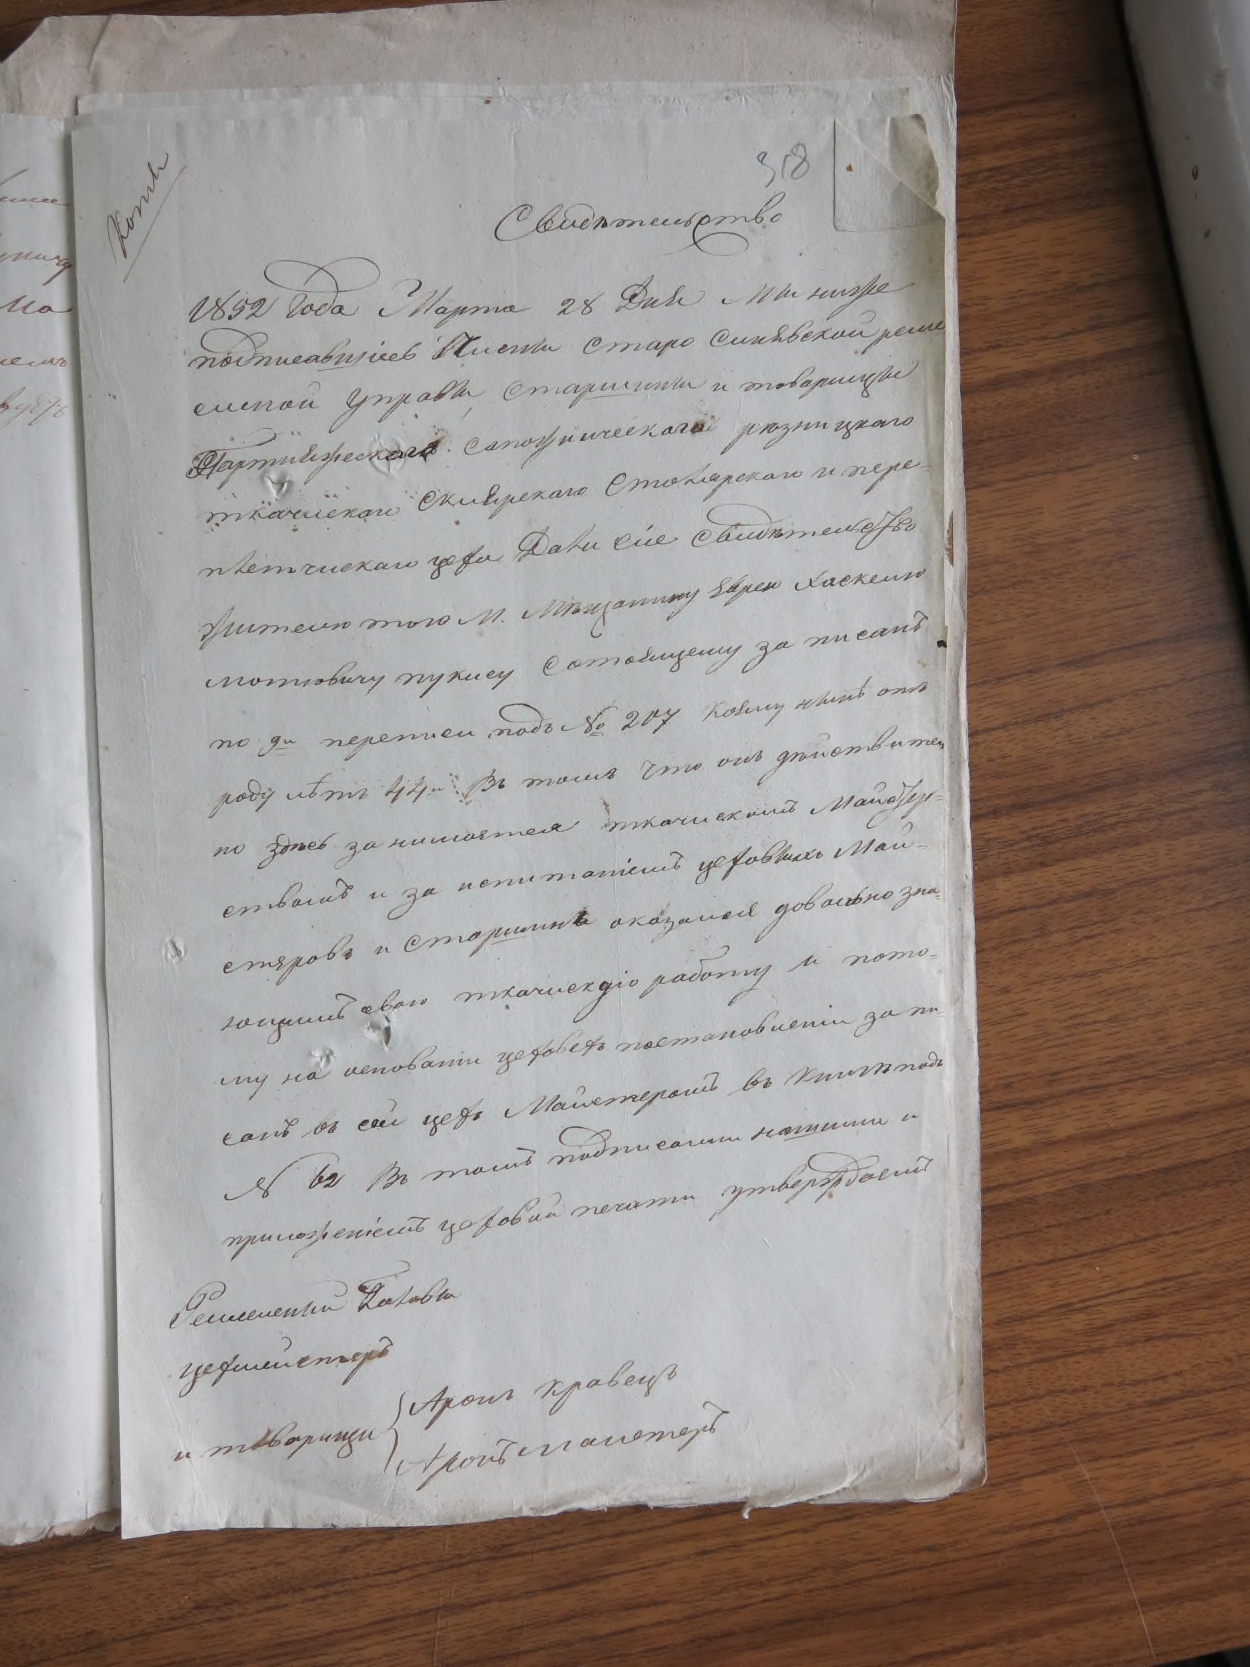 Копія
318
Свидѣтельство
1852 года Марта 28 Дня Мы ниже
подписавшіесь Члены Старо Синявской реме
сленой Управы Старшины и товарищы
сапожническаго рюзницкаго
ткачискаго Склярскаго Столярскаго и пере-
плетчискаго цеха Дали сіе Свидѣтельство
жителю того М. Мѣщанину Еврею Хаскелю
мотіовичу пукису Состоящему за писанъ
по 9й переписи подъ № 207 Коему нынѣ отъ
роду лѣтъ 44 Въ томъ Что онъ дѣйствител
но здѣсь занимается ткачискимъ Майстер-
ствомъ и за испитаніемъ цеховыхъ Май-
стровъ и Старшинъ оказался довольно зна-
ющимъ свою ткачискую работу и пото-
му на основаніи цеховыхъ постановленіи за пи-
санъ въ сей цехъ Майстеромъ въ Книгѣ подъ
№ 62 Въ томъ подписами нашими и
приложеніемъ цеховой печати утверждаемъ
Ремесленный Голова
цехмейстеръ
и товарищи
Аронъ Кравецъ
Аронъ майстеръ